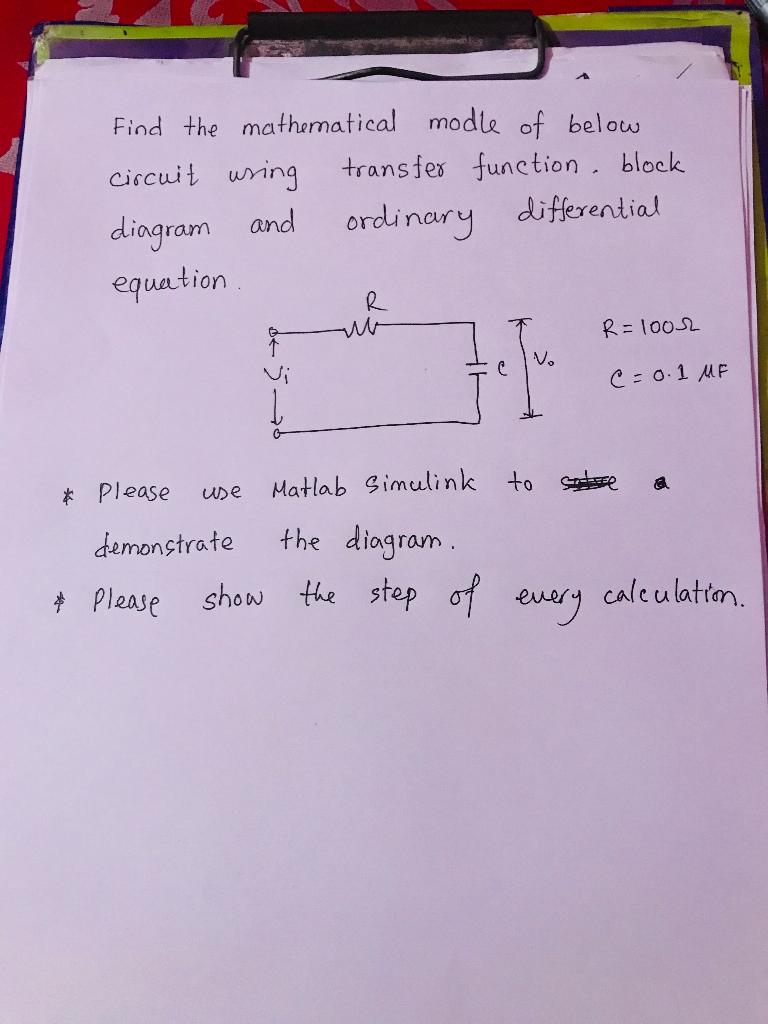 Find the mathematical modle of below
circuit using transfer function. block
diagram and ordinary differential
equation.
R
R = 100Ω
Vi
c
Vo
C = 0.1 μF
* Please use Matlab Simulink to a
demonstrate the diagram.
* Please show the step of every calculation.